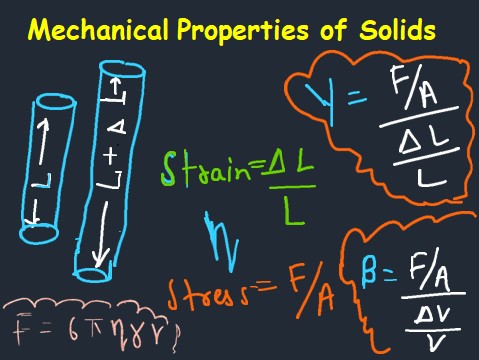 Mechanical Properties of Solids
L
L + Δ L
Strain = ΔL/L
η
Stress = F/A
Y = F/A / ΔL/L
β = F/A / ΔV/V
F = 6πηγv